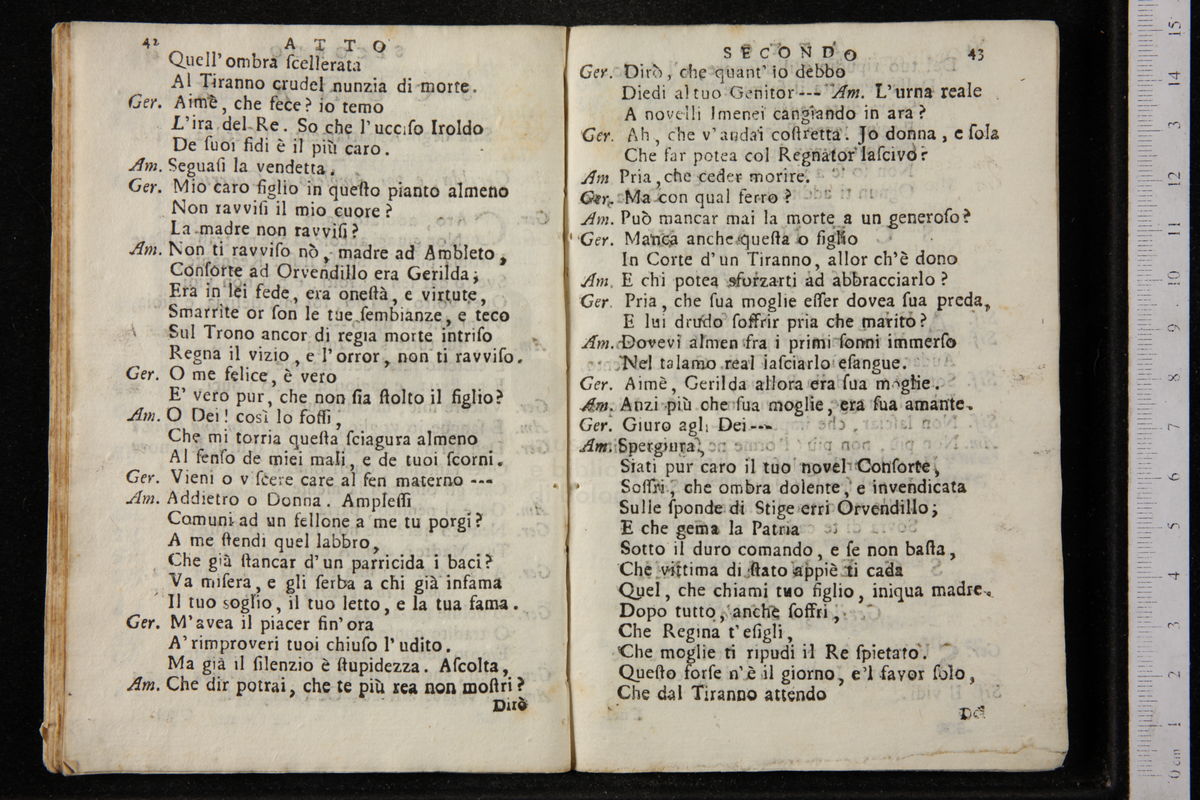 42 ATTO
Quell' ombra ſcellerata
Al Tiranno crudel nunzia di morte.
Ger. Aimè, che fece? io temo
L'ira del Re. So che l'ucciſo Iroldo
De ſuoi fidi è il più caro.
Am. Seguaſi la vendetta.
Ger. Mio caro figlio in queſto pianto almeno
Non ravviſi il mio cuore?
La madre non ravviſi?
Am. Non ti ravviſo nò, madre ad Ambleto,
Conſorte ad Orvendillo era Gerilda;
Era in lei fede, era oneſtà, e virtute,
Smarrite or ſon le tue ſembianze, e teco
Sul Trono ancor di regia morte intriſo
Regna il vizio, e l'orror, non ti ravviſo.
Ger. O me felice, è vero
E' vero pur, che non ſia ſtolto il figlio?
Am. O Dei! così lo foſſi,
Che mi torria queſta ſciagura almeno
Al ſenſo de miei mali, e de tuoi ſcorni.
Ger. Vieni o viſcere care al ſen materno ---
Am. Addietro o Donna. Ampleſſi
Comuni ad un fellone a me tu porgi?
A me ſtendi quel labbro,
Che già ſtancar d'un parricida i baci?
Va miſera, e gli ſerba a chi già infama
Il tuo soglio, il tuo letto, e la tua fama.
Ger. M'avea il piacer fin'ora
A' rimproveri tuoi chiuſo l'udito.
Ma già il ſilenzio è ſtupidezza. Aſcolta,
Am. Che dir potrai, che te più rea non moſtri?
Dirò
SECONDO 43
Ger. Dirò, che quant' io debbo
Diedi al tuo Genitor --- Am. L'urna reale
A novelli Imenei cangiando in ara?
Ger. Ah, che v'andai coſtretta. Jo donna, e ſola
Che far potea col Regnator laſcivo?
Am Pria, che ceder morire.
Ger. Ma con qual ferro?
Am. Può mancar mai la morte a un generoſo?
Ger. Manca anche queſta o figlio
In Corte d'un Tiranno, allor ch'è dono
Am. E chi potea sforzarti ad abbracciarlo?
Ger. Pria, che ſua moglie eſſer dovea ſua preda,
E lui drudo ſoffrir pria che marito?
Am. Dovevi almen fra i primi ſonni immerſo
Nel talamo real laſciarlo eſangue.
Ger. Aimè, Gerilda allora era ſua moglie.
Am. Anzi più che ſua moglie, era ſua amante.
Ger. Giuro agli Dei ---
Am. Spergiura,
Siati pur caro il tuo novel Conſorte,
Soffri, che ombra dolente, e invendicata
Sulle ſponde di Stige erri Orvendillo;
E che gema la Patria
Sotto il duro comando, e ſe non baſta,
Che vittima di ſtato appiè ti cada
Quel, che chiami tuo figlio, iniqua madre.
Dopo tutto, anche ſoffri,
Che Regina t'eſigli,
Che moglie ti ripudi il Re ſpietato.
Queſto forſe n'è il giorno, e'l favor ſolo,
Che dal Tiranno attendo
Del